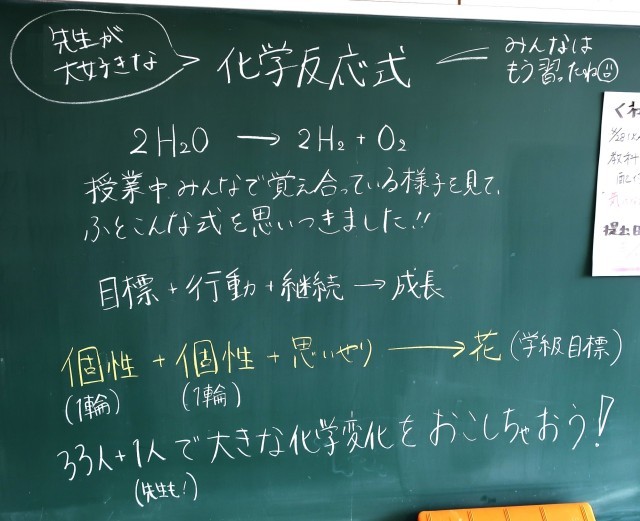 先生が
大好きな
化学反応式
みんなは
もう習ったね
2H₂O → 2H₂ + O₂
授業中みんなで覚え合っている様子を見て、
ふとこんな式を思いつきました!!
目標 + 行動 + 継続 → 成長
個性 + 個性 + 思いやり → 花 (学級目標)
(1輪) (1輪)
33人+1人で大きな化学変化をおこしちゃおう!
(先生も!)
教科